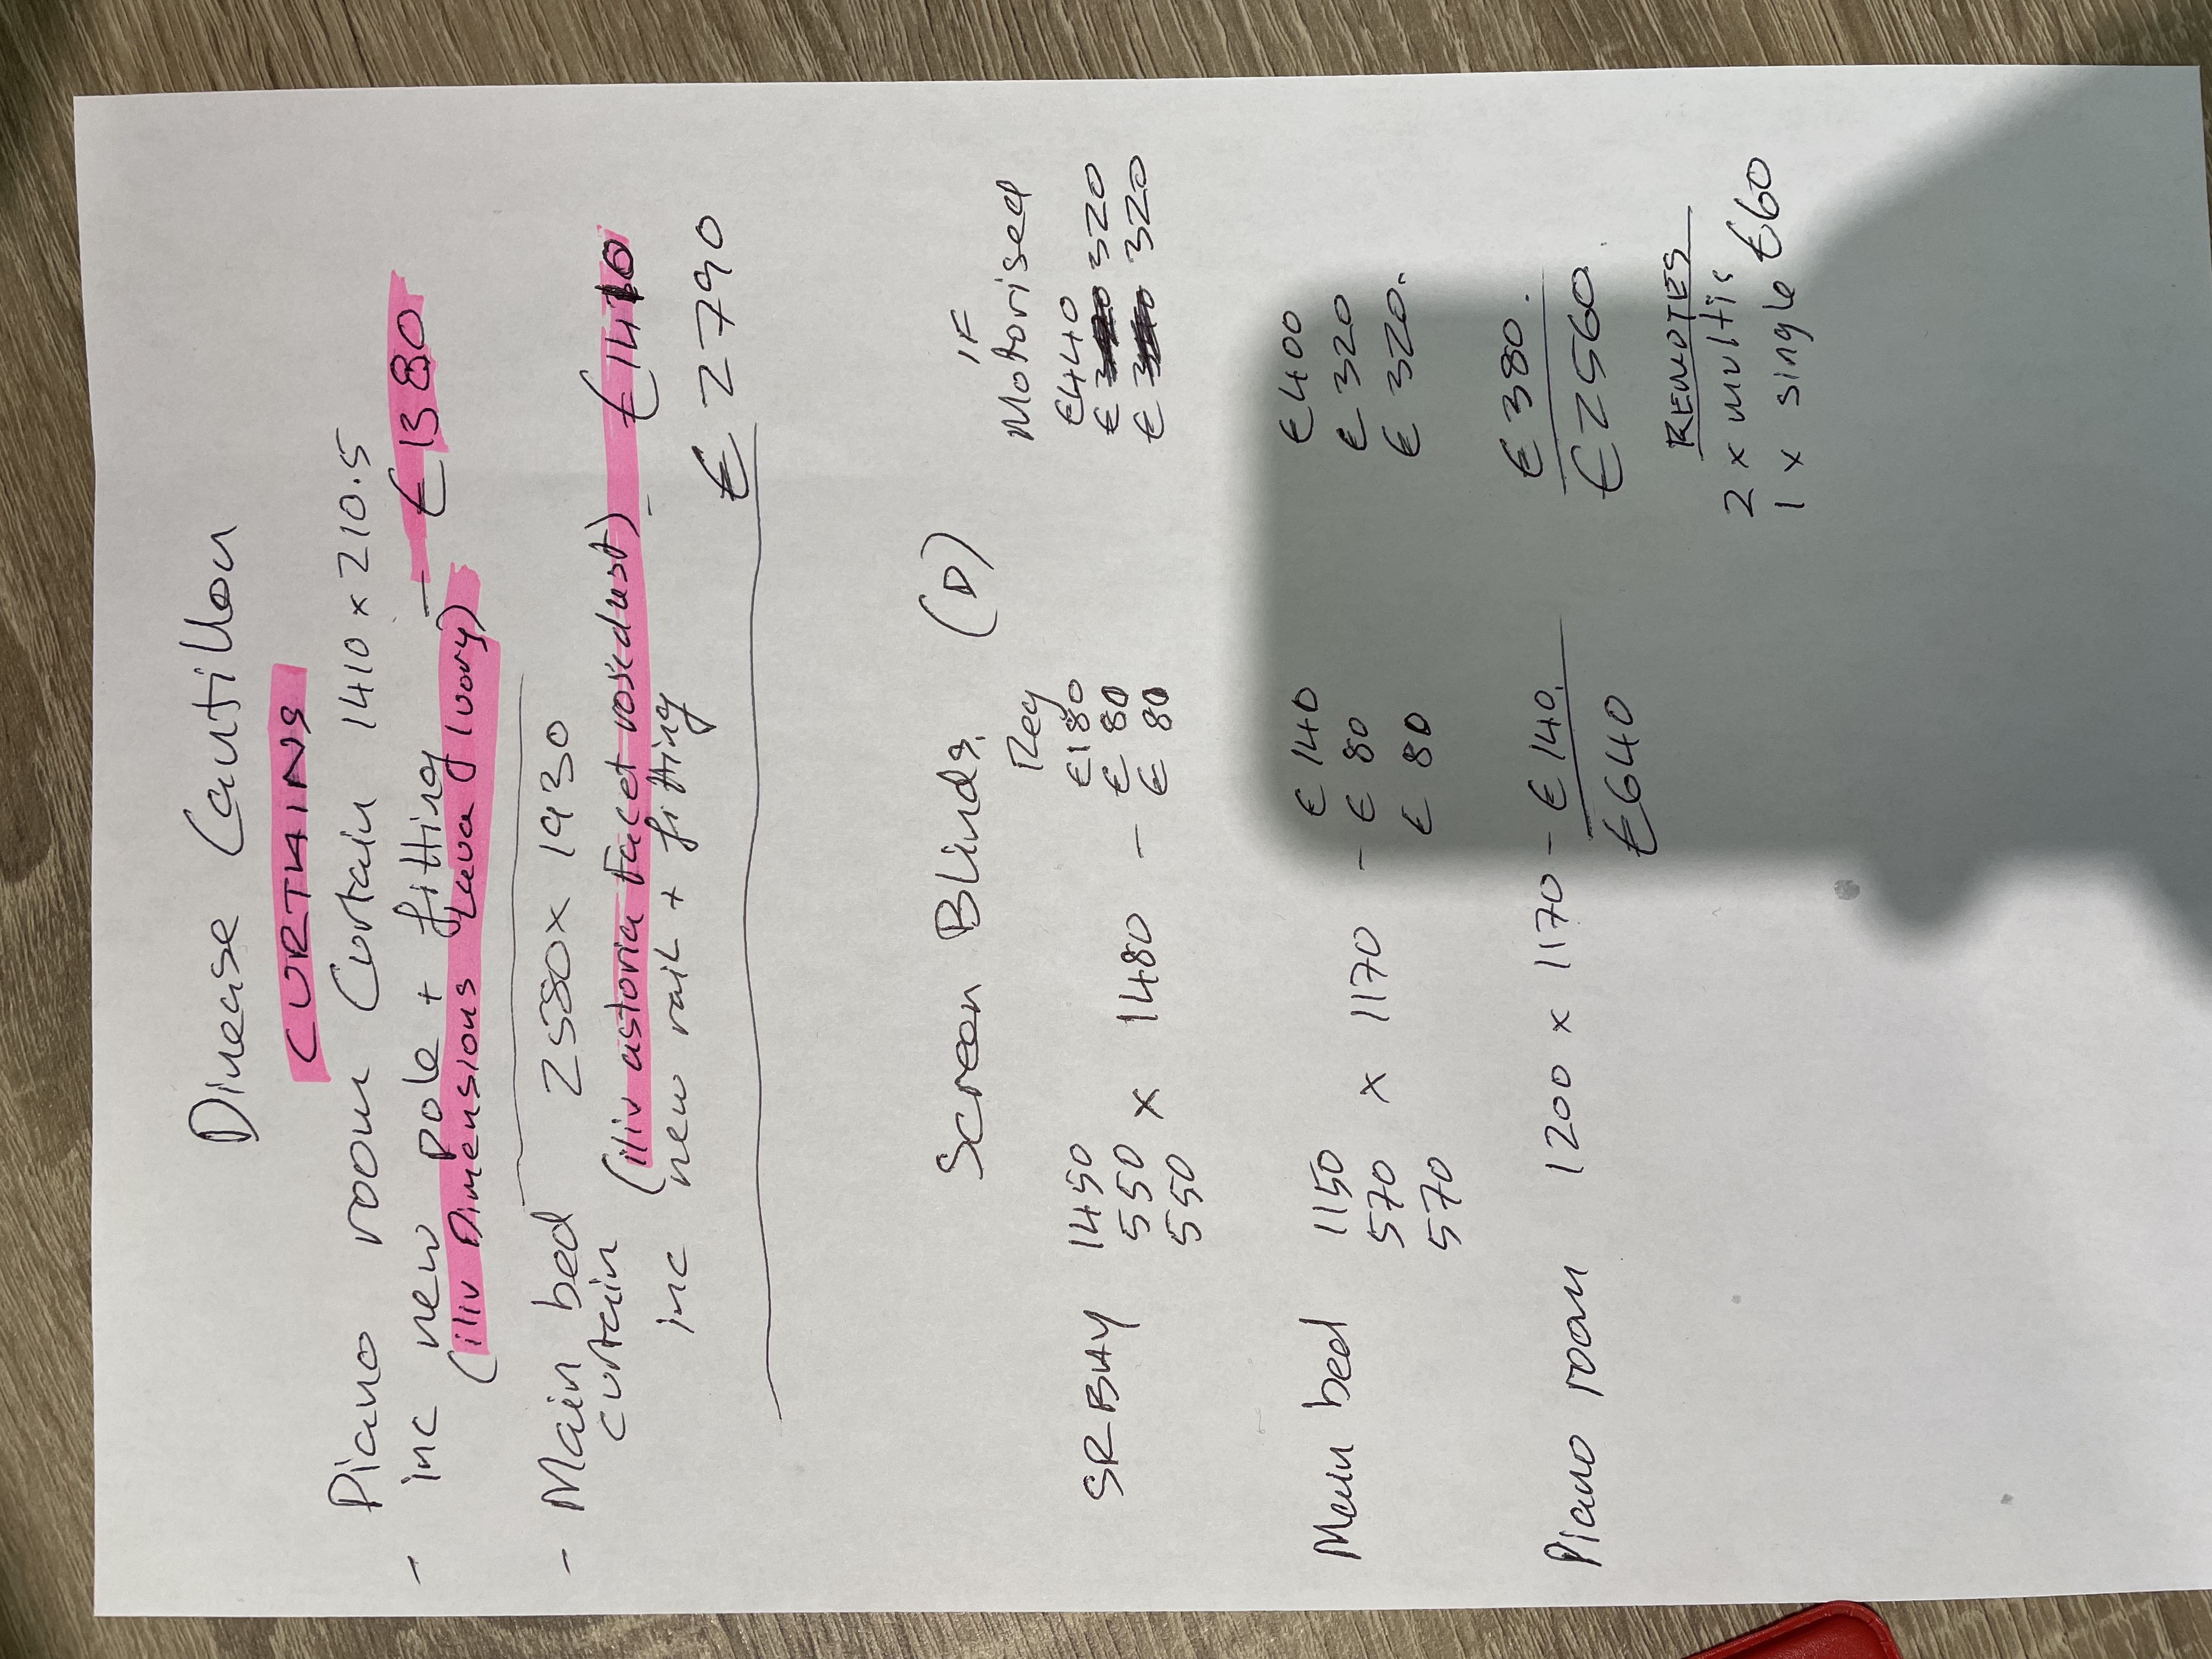 Dinease Cantillon
CURTAINS
- Piano room Curtain 1410 x 210.5
inc new pole + fitting - €1380
(iliv Dimensions Lava Ivory)
- Main bed 2580 x 1930
curtain (iliv astoria Facet rosedust) - €1410
inc new rail + fitting
€2790
Screen Blinds. (D)
Reg IF Motorised
SR BAY 1450 €180 €440
550 x 1480 - €80 € 320
550 €80 € 320
Main bed 1150 €140 €400
570 x 1170 - €80 €320
570 €80 €320.
Piano room 1200 x 1170 - €140. €380.
€640 €2560
REMOTES
2 x multis
1 x single €60